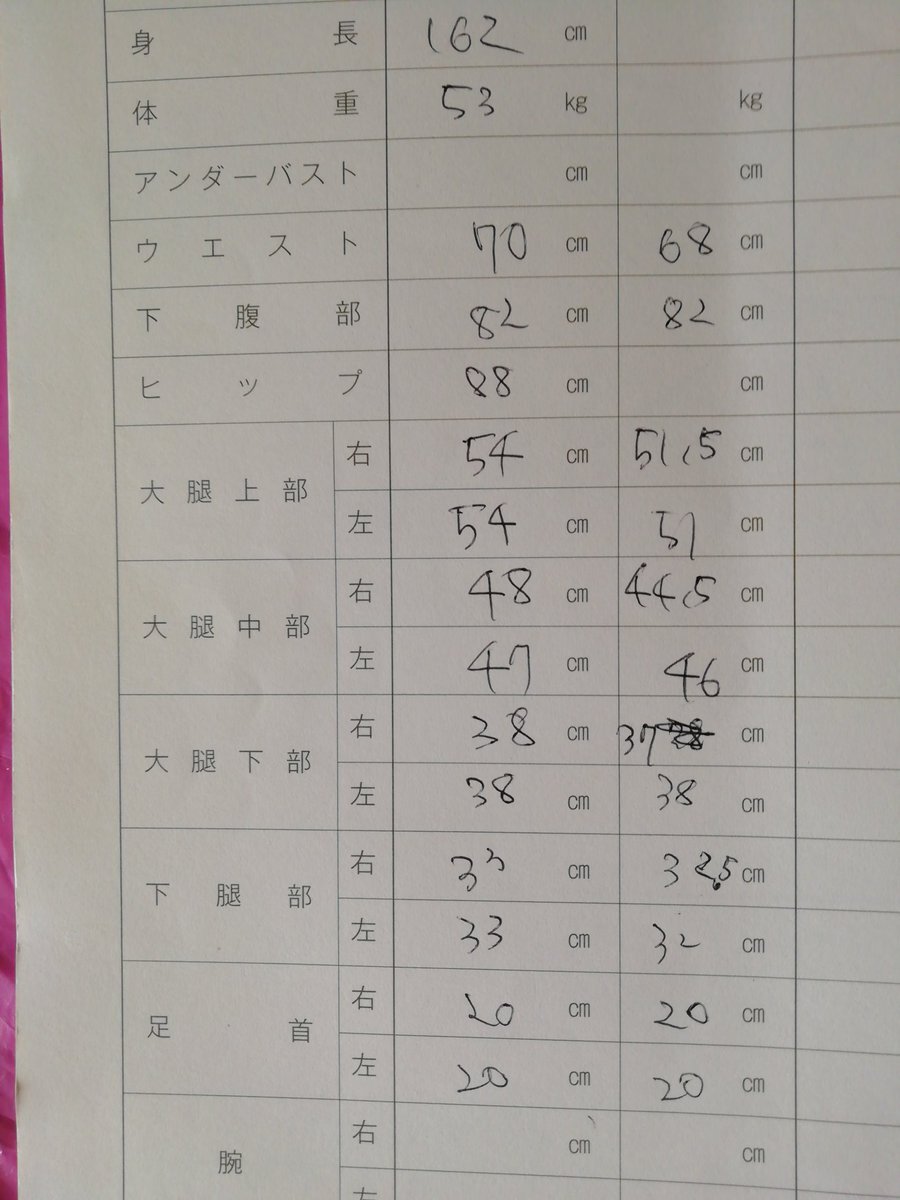 身長 162 cm
体重 53 kg kg
アンダーバスト cm cm
ウエスト 70 cm 68 cm
下腹部 82 cm 82 cm
ヒップ 88 cm cm
大腿上部 右 54 cm 51.5 cm
左 54 cm 51 cm
大腿中部 右 48 cm 44.5 cm
左 47 cm 46 cm
大腿下部 右 38 cm 37 cm
左 38 cm 38 cm
下腿部 右 33 cm 32.5 cm
左 33 cm 32 cm
足首 右 20 cm 20 cm
左 20 cm 20 cm
腕 右 cm cm
左